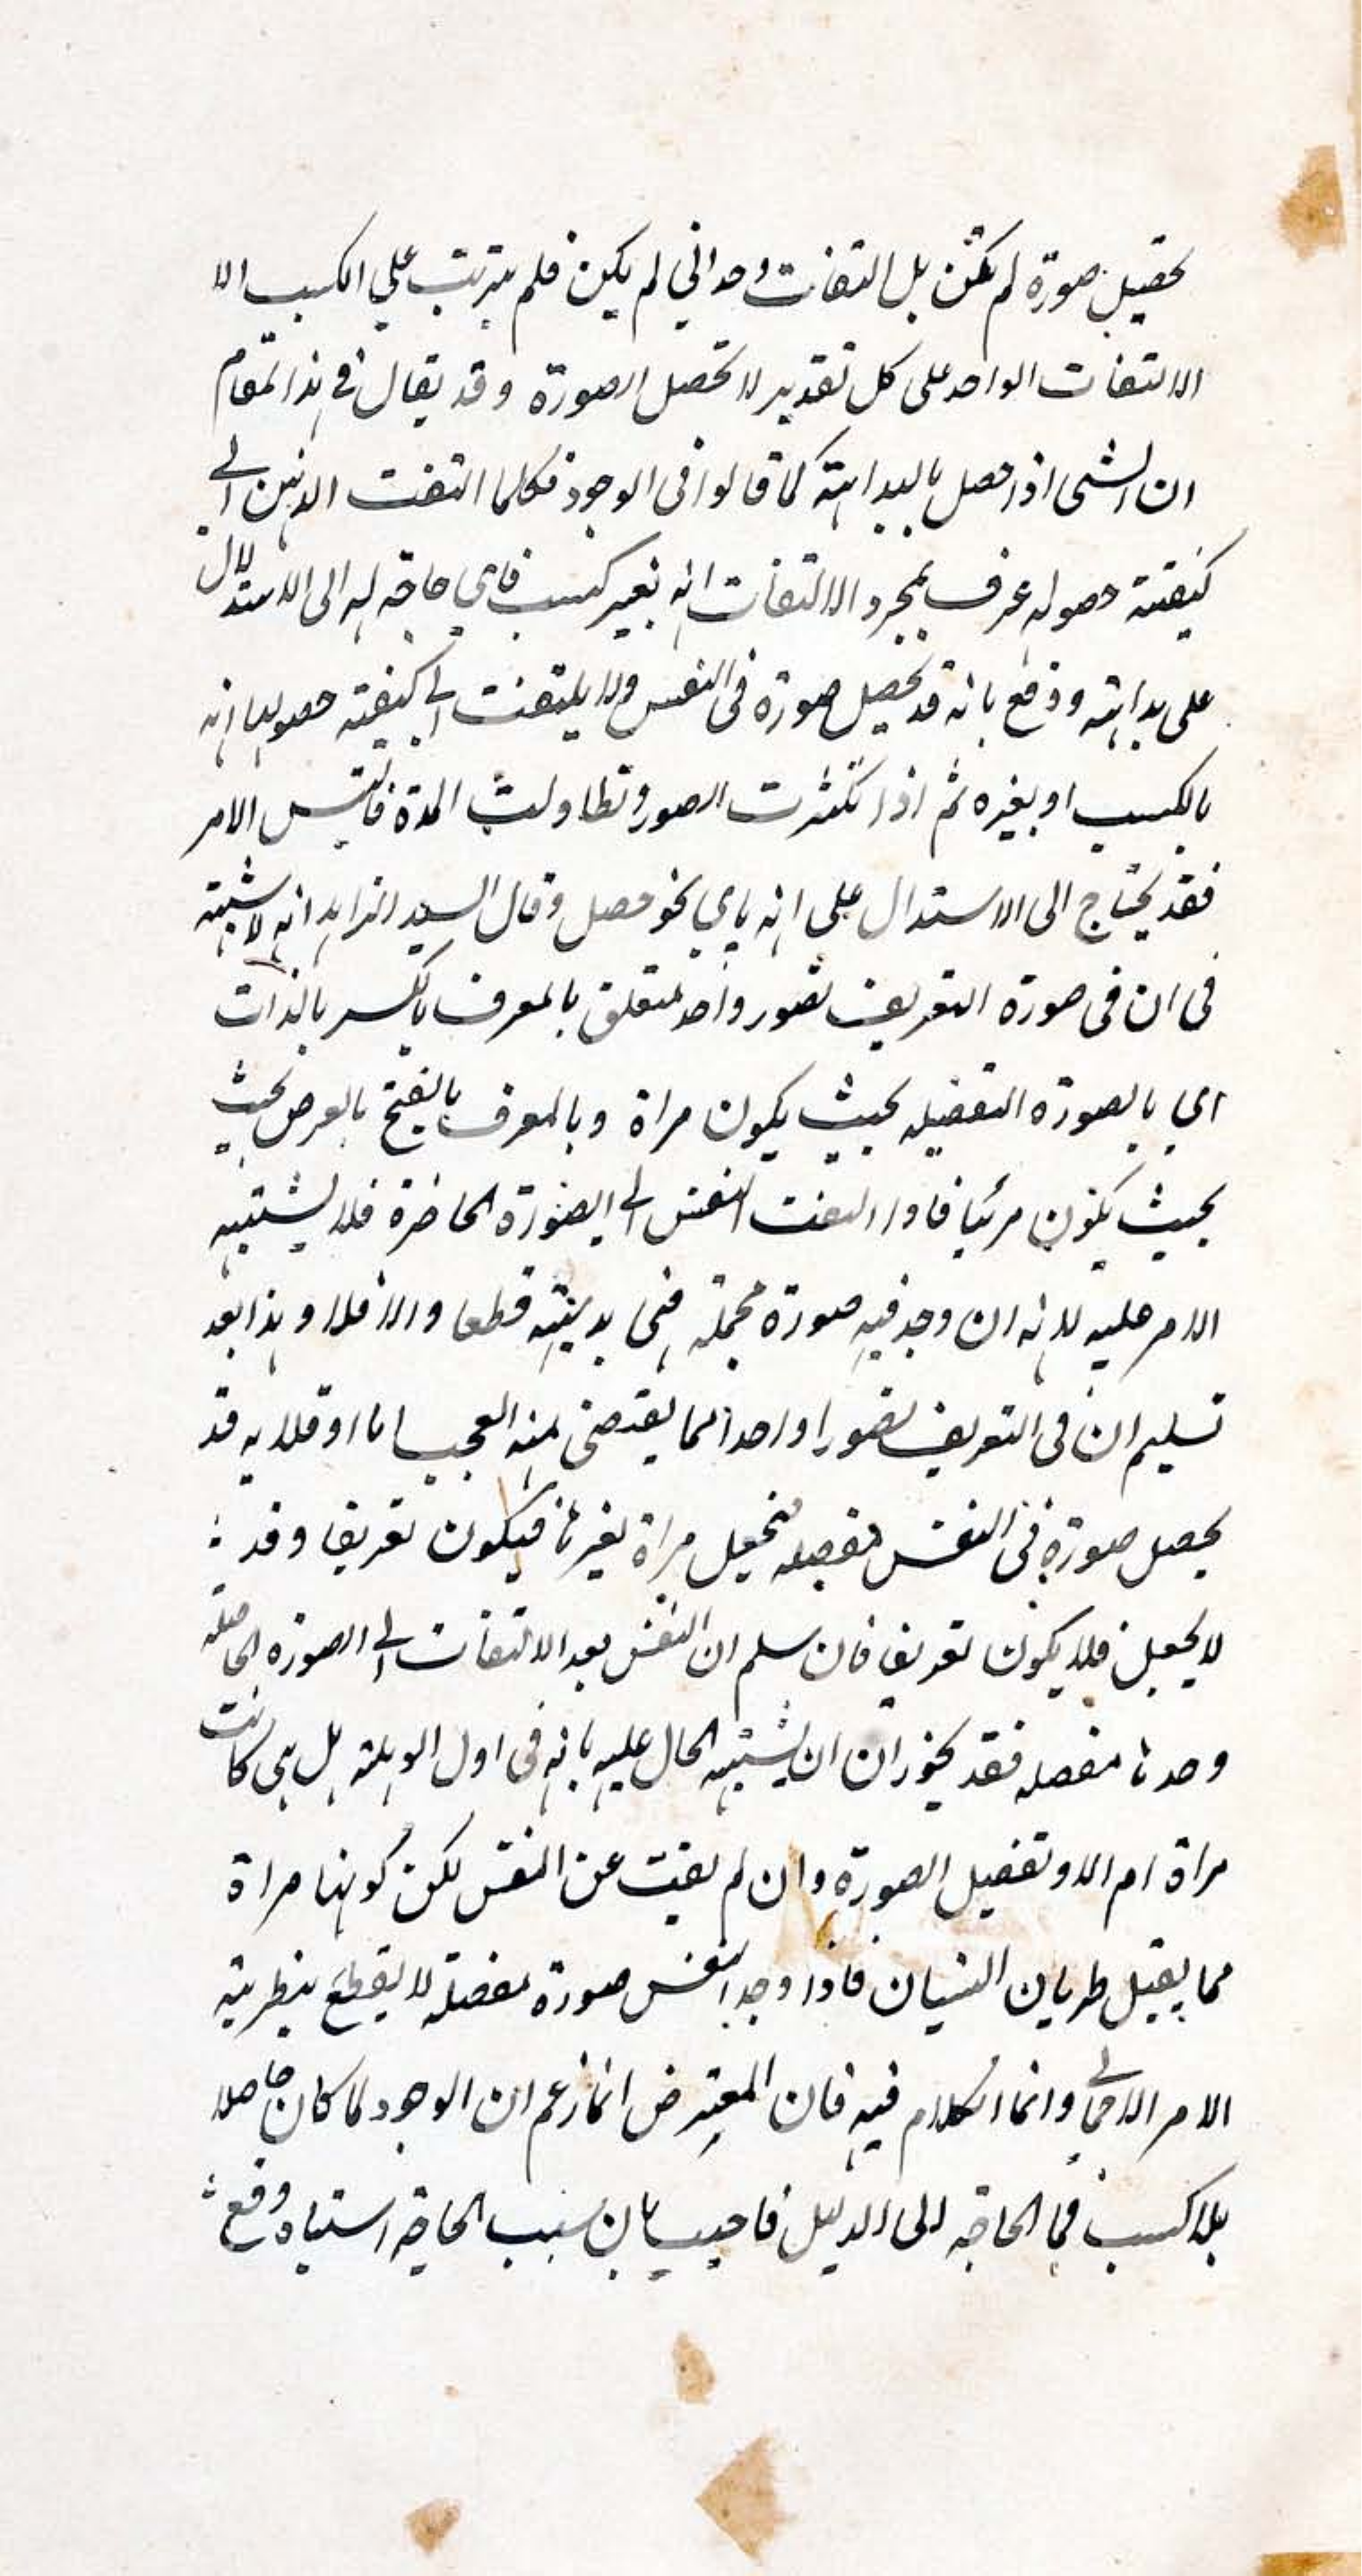 تحصيل صورة لم تكن بل التفات وحداني لم يكن فلم يترتب على الكسب الا
الالتفات الواحد على كل تقدير لا تحصل الصورة وقد يقال في هذا المقام
ان الشى اذا حصل بالبداهته كما قالوا فى الوجود فكلما التفت الذهن الى
كيفيته حصوله عرف بمجرد الالتفات انه بغير كسب فاي حاجة له الى الاستدلال
على بداهته ودفع بانه قد يحصل صورة فى النفس ولا يلتفت الى كيفيته حصولها انه
بالكسب او بغيره ثم اذا تكثرت الصور وتطاولت المدة فالتبس الامر
فقد يحتاج الى الاستدال على انه باي نحو حصل وقال السيد الزاهد انه لا شبهته
فى ان فى صورة التعريف تصور واحد متعلق بالمعرف بالكسر بالذات
اي بالصورة التفصيله بحيث يكون مراة وبالمعرف بالفتح بالعرض بحيث
بحيث يكون مرئيا فاذا التفت النفس الى الصورة الحاضرة فلا يشتبه
الامر عليه لانه ان وجد فيه صورة مجملة فهى بديهته قطعا والا فلا وهذا بعد
تسليم ان فى التعريف تصورا واحدا مما يقتضى منه العجب اما اولا فلانه قد
يحصل صورة فى النفس مفصله فيجعل مراة لغيرها فيكون تعريفا وقد
لا يجعل فلا يكون تعريفا فان سلم ان النفس بعد الالتفات الى الصورة الحاصله
وحدها مفصله فقد يجوز ان ان يشتبه الحال عليه بانه فى اول الوهلة هل هى كانت
مراة ام لا وتفصيل الصورة وان لم يغيب عن النفس لكن كونها مراة
مما يقبل طريان النسيان فاذا وجد النفس صورة مفصلة لا يقطع بنظريته
الامر الاجمالي وانما الكلام فيه فان المعترض انما زعم ان الوجود لما كان حاصلا
بلا كسب فما الحاجه الى الدليل فاجيب بان سبب الحاجة اشتباه وقع